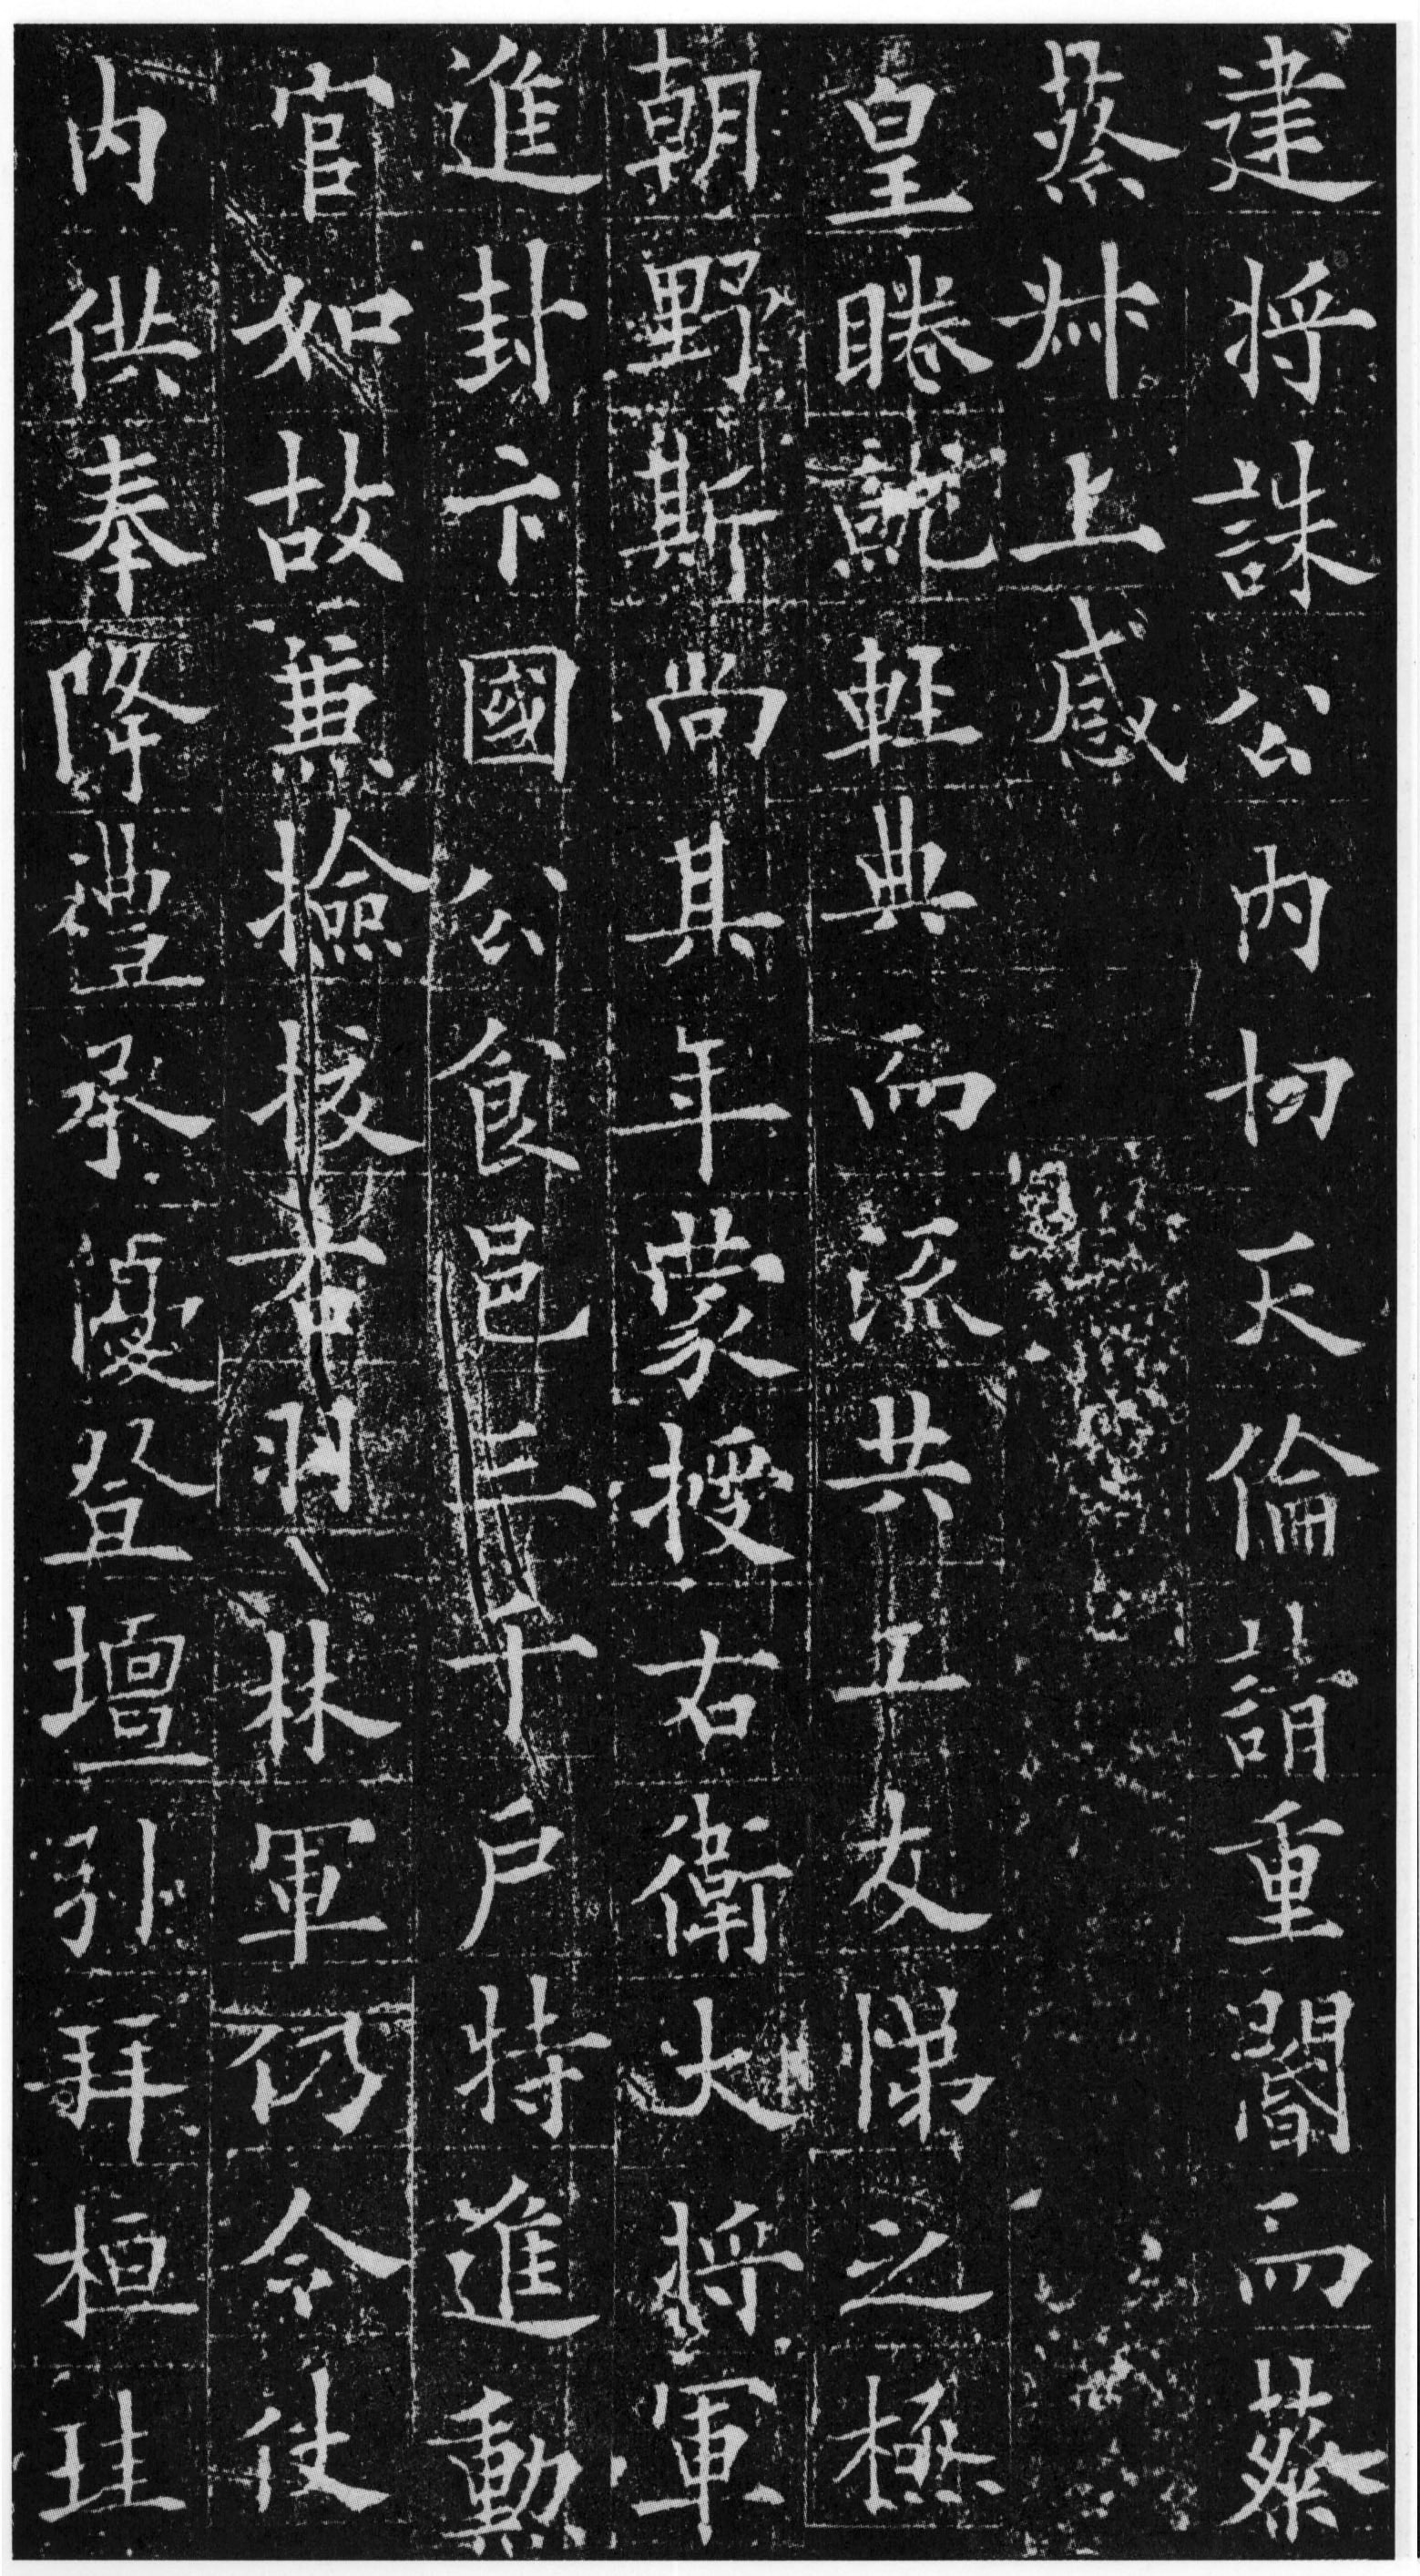 建將誅公內切天倫請重閽而蔡
蔡叔上感
皇睠就軒典而流共工友悌之極
朝野斯尚其年蒙授右衛大將軍
進封卞國公食邑三千戶特進勳
官如故兼檢校右羽林軍仍令仗
內供奉降禮承優登壇引拜桓珪